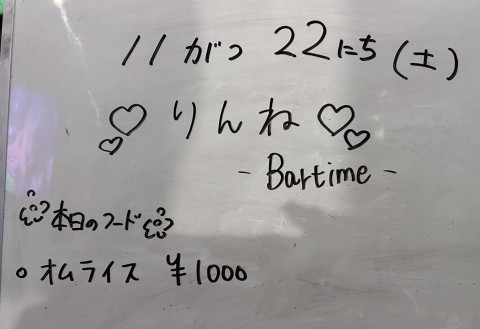 11がつ 22にち(土)
♡りんね♡
- Bartime -
本日のフード
○ オムライス ¥1000